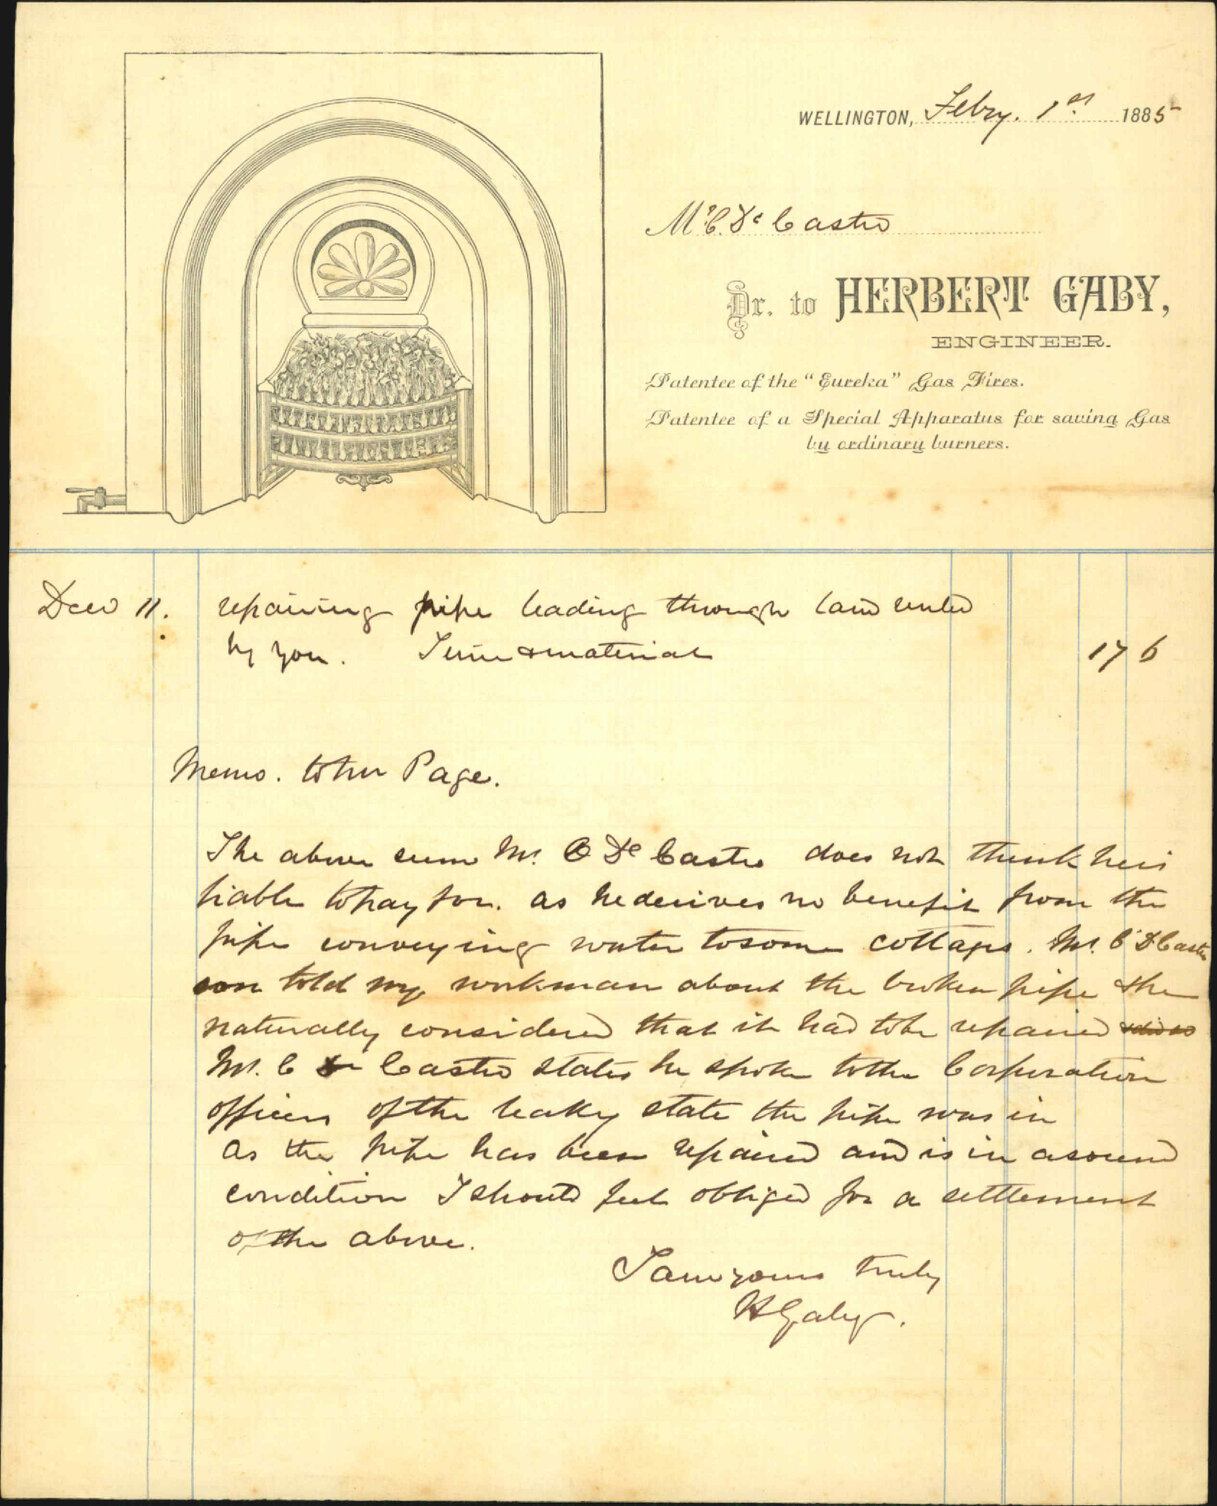 WELLINGTON, Febry. 1st 1885
Mr C. De Castro
Dr. to HERBERT GABY,
ENGINEER.
Patentee of the "Eureka" Gas Fires.
Patentee of a Special Apparatus for saving Gas
by ordinary burners.
Decr 11. repairing pipe leading through land rented
by you. Time & material 17 6
Memo. to Mr Page.
The above sum Mr. C De Castro does not think he is
liable to pay for. as he derives no benefit from the
pipe conveying water to some cottages. Mr. C D Castro
son told my workman about the broken pipe & he
naturally considered that it had to be repaired
Mr. C De Castro states he spoke to the Corporation
officers of the leaky state the pipe was in
As the pipe has been repaired and is in a sound
condition I should feel obliged for a settlement
of the above.
I am yours truly
H Gaby.